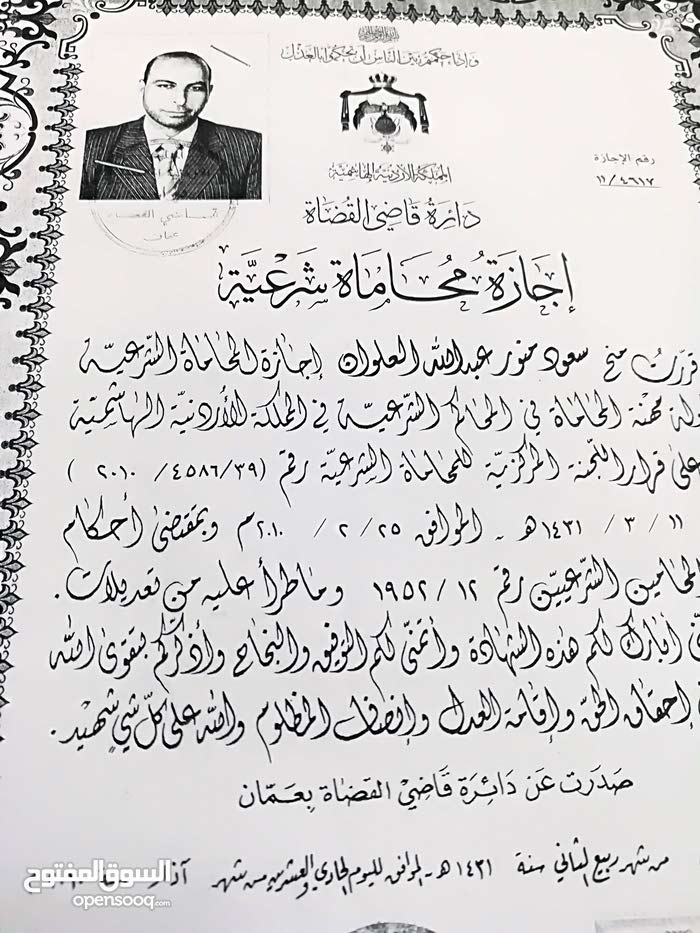 وإذا حكمتم بين الناس أن تحكموا بالعدل
المملكة الأردنية الهاشمية
رقم الإجازة
١١/٤٦١٧
دَائِرَة قَاضِي القُضَاة
إجَازَةُ مُحَامَاة شَرْعِيَّة
قررت منح سعود منور عبدالله العلوان إجازة المحاماة الشرعية
مهنة المحاماة في المحاكم الشرعية في المملكة الأردنية الهاشمية
على قرار اللجنة المركزية للمحاماة الشرعية رقم (٤٥٨٦/٣٩/ ٢٠١٠)
١١ / ٣ / ١٤٣١هـ - الموافق ٢٥ / ٢ / ٢٠١٠م وبمقتضى أحكام
المحامين الشرعيين رقم ١٢ / ١٩٥٢ وما طرأ عليه من تعديلات.
أبارك لكم هذه الشهادة وأتمنى لكم التوفيق والنجاح وأذكركم بتقوى الله
إحقاق الحق وإقامة العدل وإنصاف المظلوم والله على كل شيء شهيد.
صَدَرَت عَن دَائِرَة قَاضِي القضَاة بِعَمَّان
من شهر ربيع الثاني سنة ١٤٣١هـ - الموافق لليوم الحادي والعشرين من شهر آذار
السوق المفتوح
opensooq.com